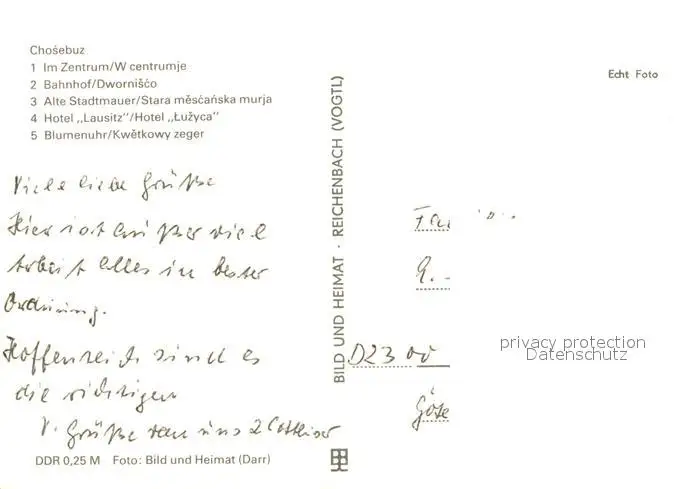 Chośebuz
1 Im Zentrum/W centrumje
2 Bahnhof/Dwornišćo
3 Alte Stadtmauer/Stara měsćańska murja
4 Hotel „Lausitz"/Hotel „Łužyca"
5 Blumenuhr/Kwětkowy zeger
Viele liebe Grüße
Hier ist außer viel
Arbeit alles in bester
Ordnung.
Hoffentlich sind es
die richtigen
V. Grüße von uns 2 Cottbuser
DDR 0,25 M Foto: Bild und Heimat (Darr)
BILD UND HEIMAT · REICHENBACH (VOGTL)
Echt Foto
Fa
D23 00
privacy protection
Datenschutz